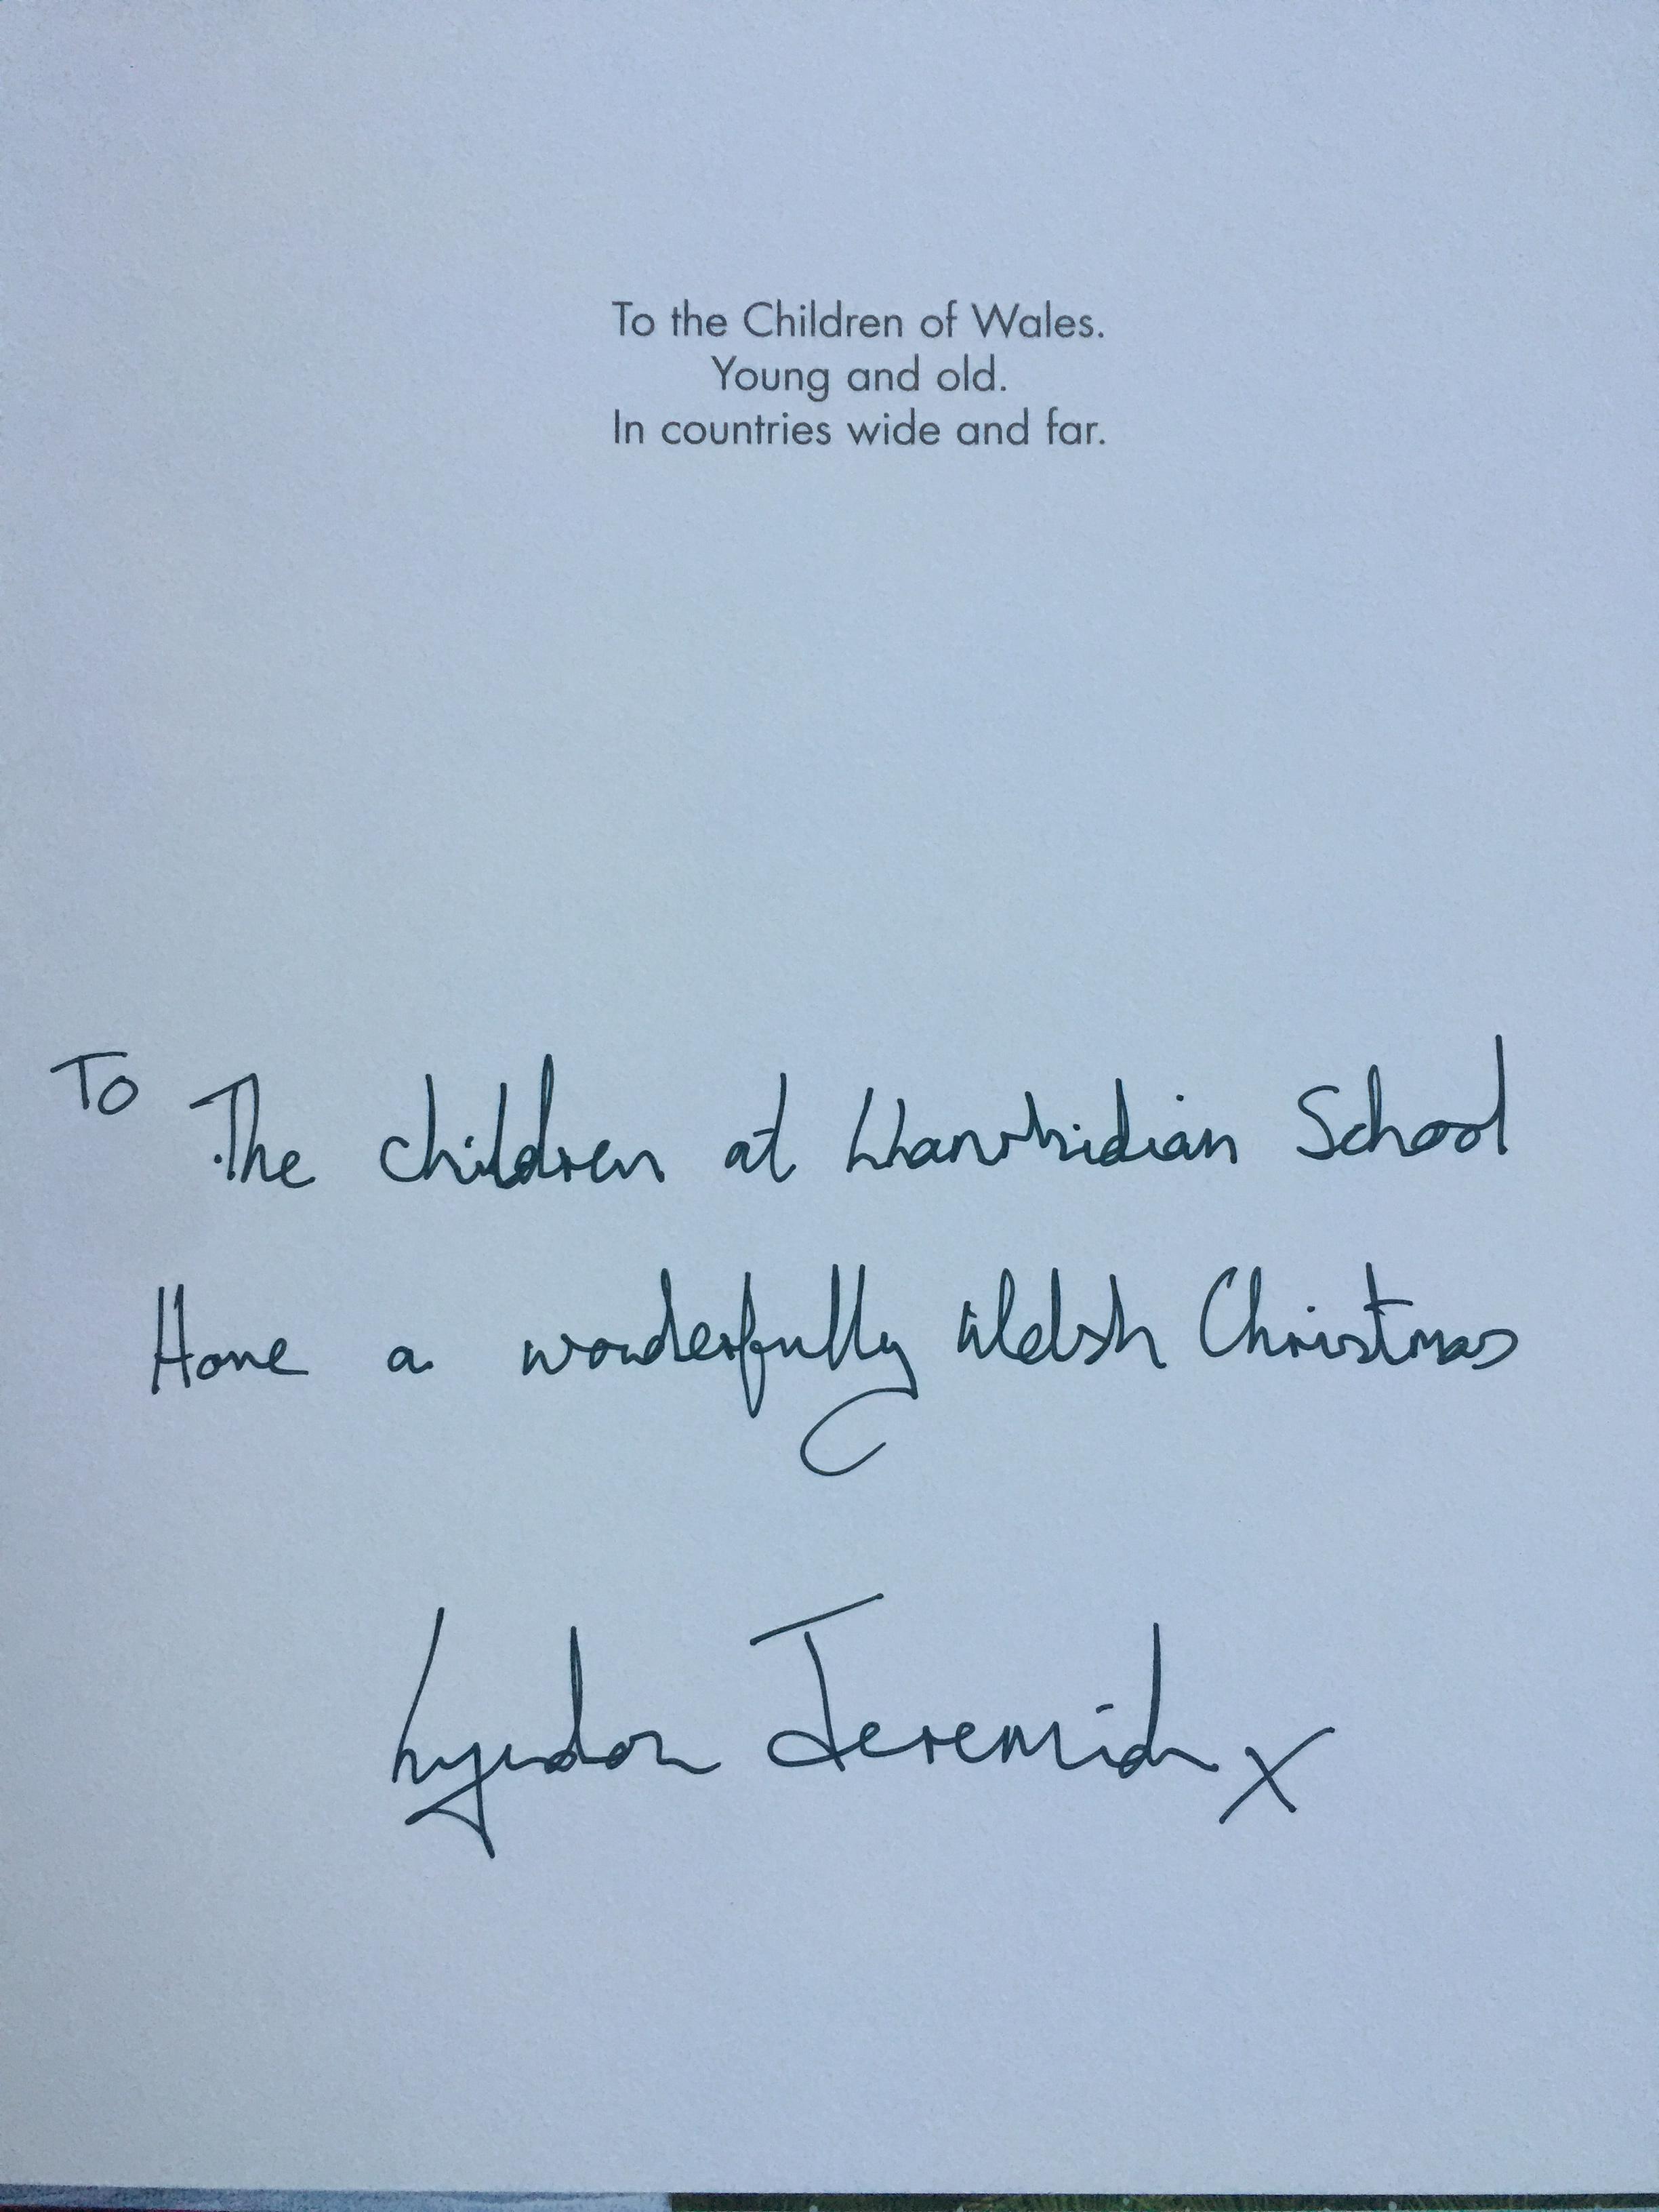 To the Children of Wales.
Young and old.
In countries wide and far.
To The children at Llanrhidian School
Have a wonderfully Welsh Christmas
Lyndon Jeremiah x